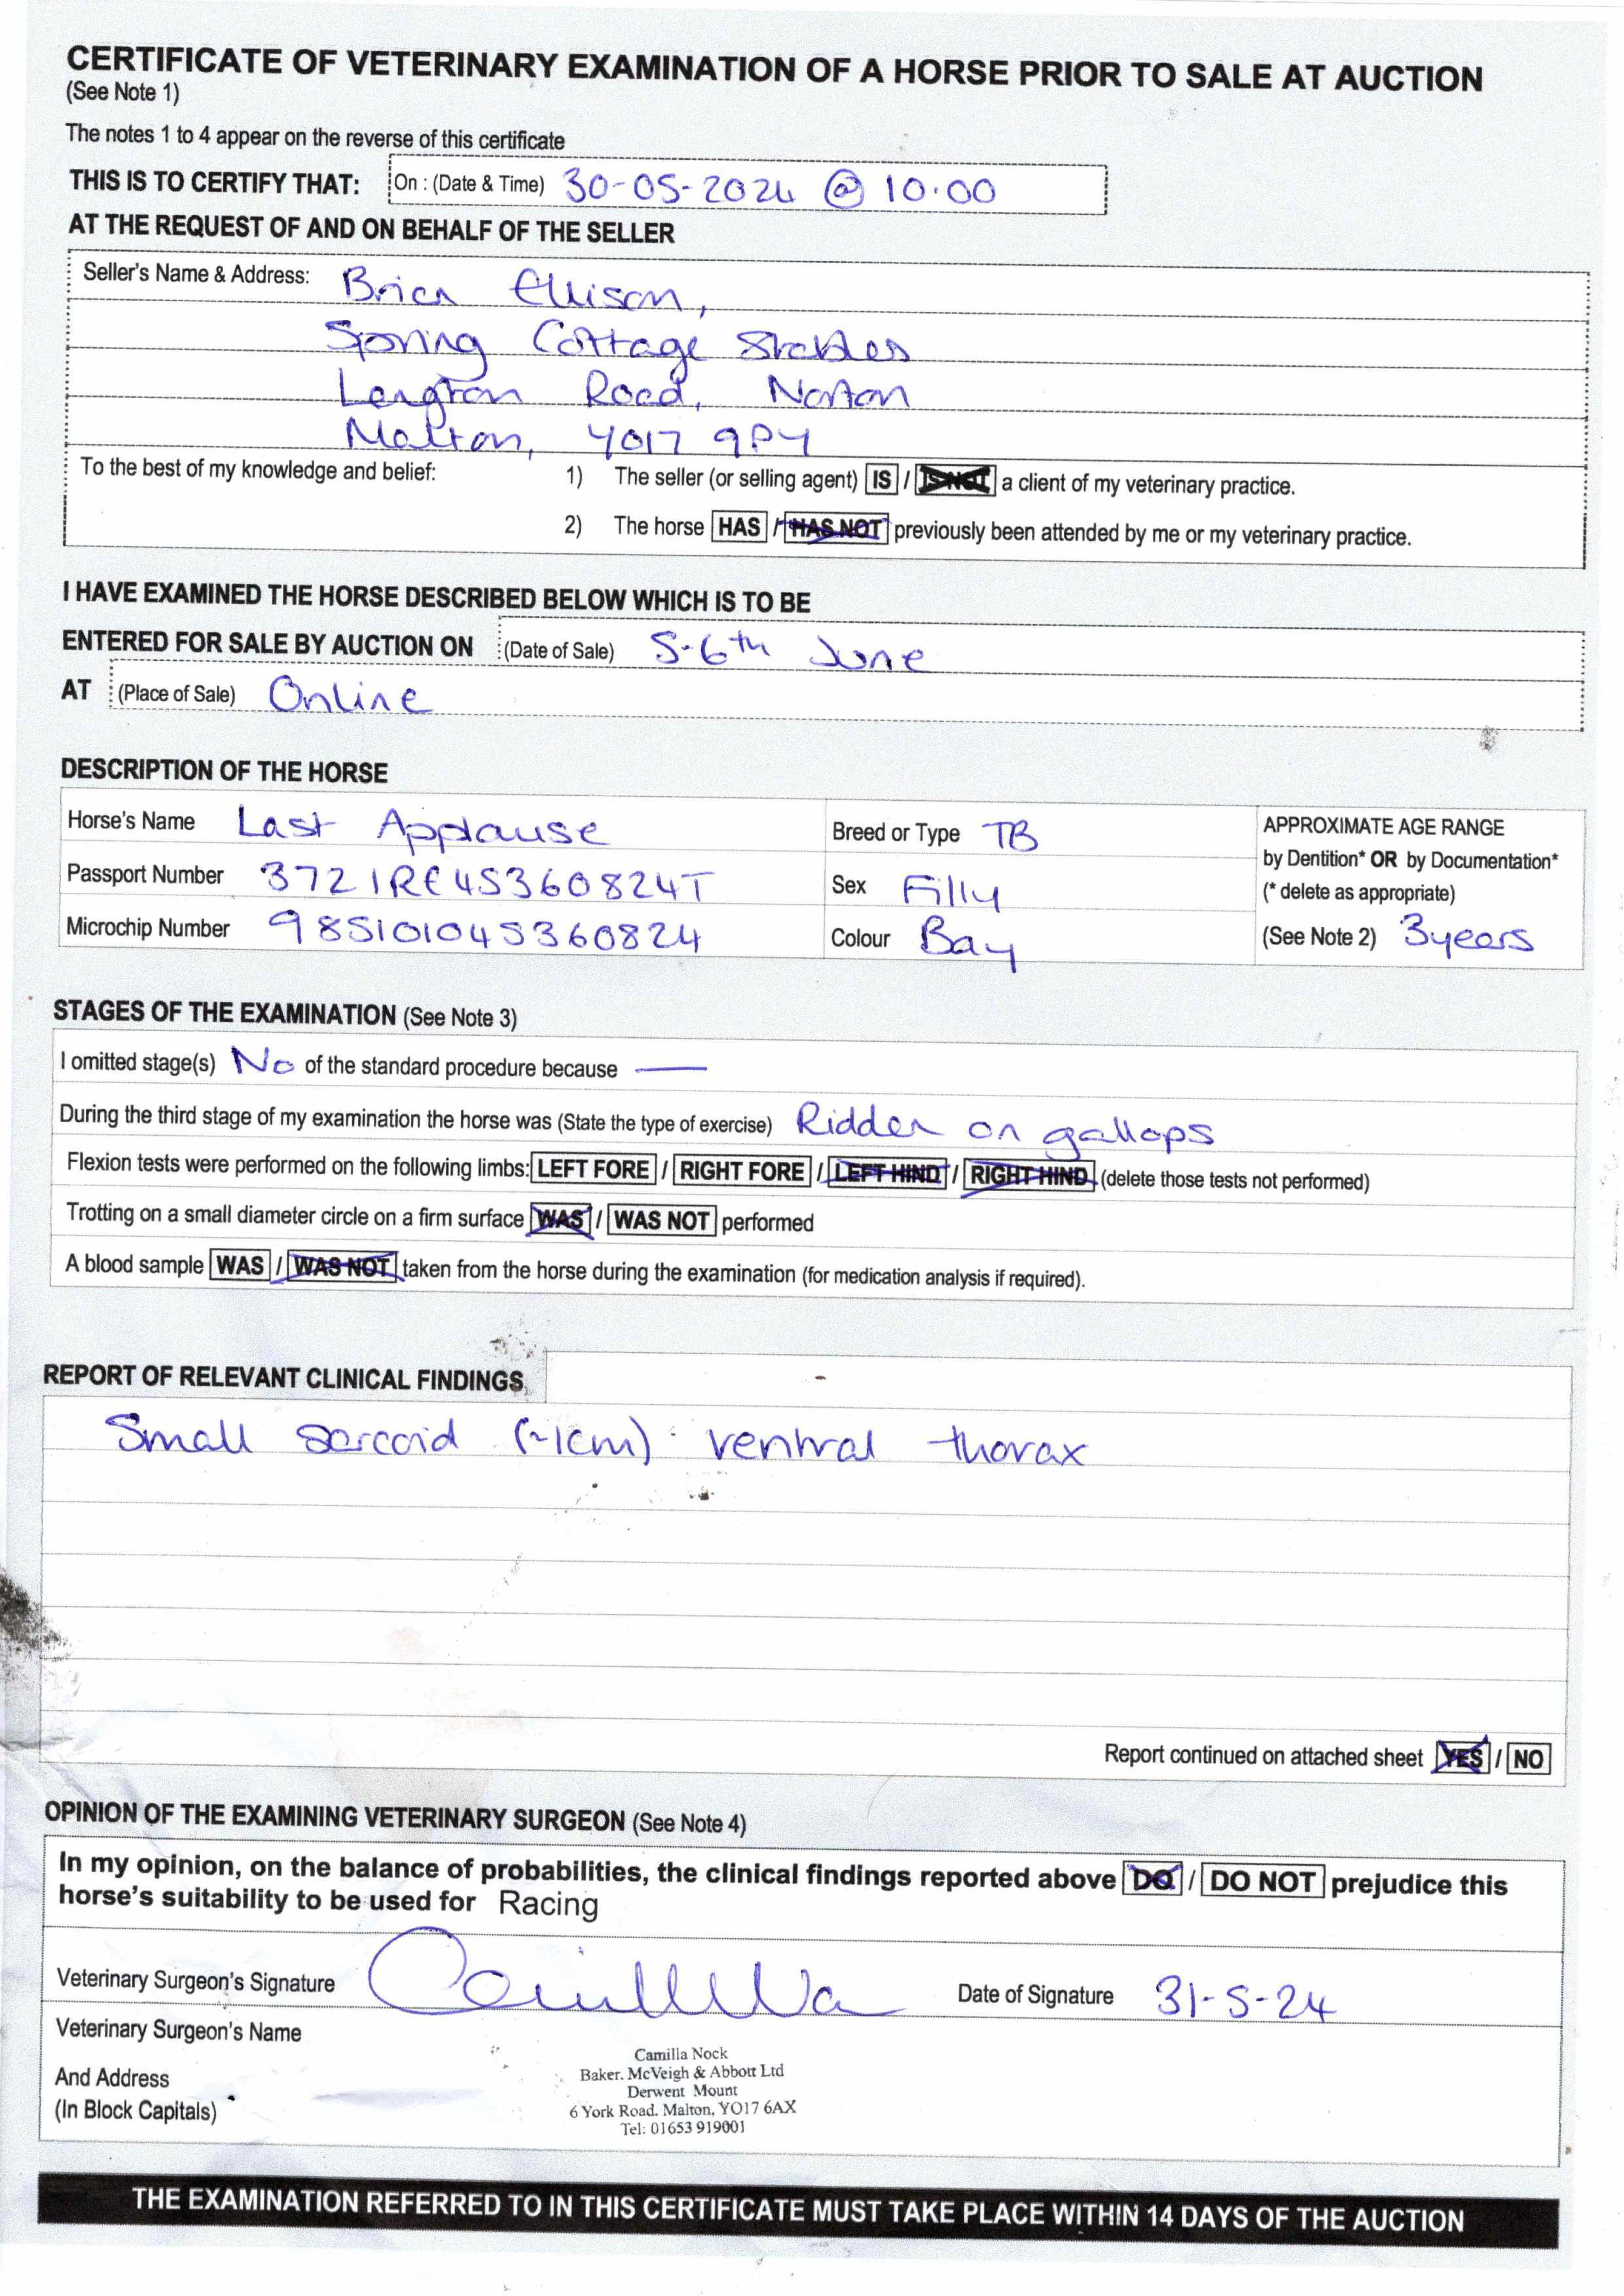 CERTIFICATE OF VETERINARY EXAMINATION OF A HORSE PRIOR TO SALE AT AUCTION
(See Note 1)
The notes 1 to 4 appear on the reverse of this certificate
THIS IS TO CERTIFY THAT: On : (Date & Time) 30-05-2024 @ 10.00
AT THE REQUEST OF AND ON BEHALF OF THE SELLER
Seller's Name & Address: Brian Ellison,
Spring Cottage Stables
Langton Road, Norton
Malton, YO17 9PY
To the best of my knowledge and belief: 1) The seller (or selling agent) IS / IS NOT a client of my veterinary practice.
2) The horse HAS / HAS NOT previously been attended by me or my veterinary practice.
I HAVE EXAMINED THE HORSE DESCRIBED BELOW WHICH IS TO BE
ENTERED FOR SALE BY AUCTION ON (Date of Sale) 5-6th June
AT (Place of Sale) Online
DESCRIPTION OF THE HORSE
Horse's Name Last Applause Breed or Type TB APPROXIMATE AGE RANGE
by Dentition* OR by Documentation*
Passport Number 372IRE45360824T Sex Filly (* delete as appropriate)
Microchip Number 985101045360824 Colour Bay (See Note 2) 3years
STAGES OF THE EXAMINATION (See Note 3)
I omitted stage(s) No of the standard procedure because —
During the third stage of my examination the horse was (State the type of exercise) Ridden on gallops
Flexion tests were performed on the following limbs: LEFT FORE / RIGHT FORE / LEFT HIND / RIGHT HIND (delete those tests not performed)
Trotting on a small diameter circle on a firm surface WAS / WAS NOT performed
A blood sample WAS / WAS NOT taken from the horse during the examination (for medication analysis if required).
REPORT OF RELEVANT CLINICAL FINDINGS
Small sarcoid (~1cm) ventral thorax
Report continued on attached sheet YES / NO
OPINION OF THE EXAMINING VETERINARY SURGEON (See Note 4)
In my opinion, on the balance of probabilities, the clinical findings reported above DO / DO NOT prejudice this
horse's suitability to be used for Racing
Veterinary Surgeon's Signature Date of Signature 31-5-24
Veterinary Surgeon's Name
And Address
(In Block Capitals)
Camilla Nock
Baker. McVeigh & Abbott Ltd
Derwent Mount
6 York Road. Malton, YO17 6AX
Tel: 01653 919001
THE EXAMINATION REFERRED TO IN THIS CERTIFICATE MUST TAKE PLACE WITHIN 14 DAYS OF THE AUCTION